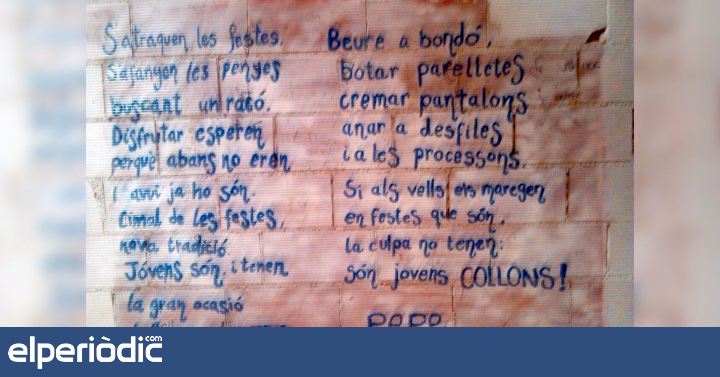 S'atraquen les festes.
S'afanyen les penyes
buscant un racó.
Disfrutar esperen
perquè abans no eren
i avui ja ho són.
Cimal de les festes,
nova tradició
Jóvens són, i tenen
la gran ocasió
Beure a bondó,
botar parelletes
cremar pantalons
anar a desfiles
i a les processons.
Si als vells els maregen
en festes que són,
la culpa no tenen:
són jovens COLLONS!
POPO
elperiòdic.com